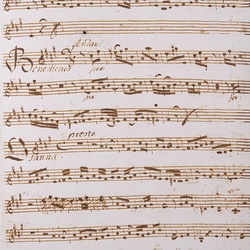 Andant
Benedictus pia
pia for
presto
Osanna